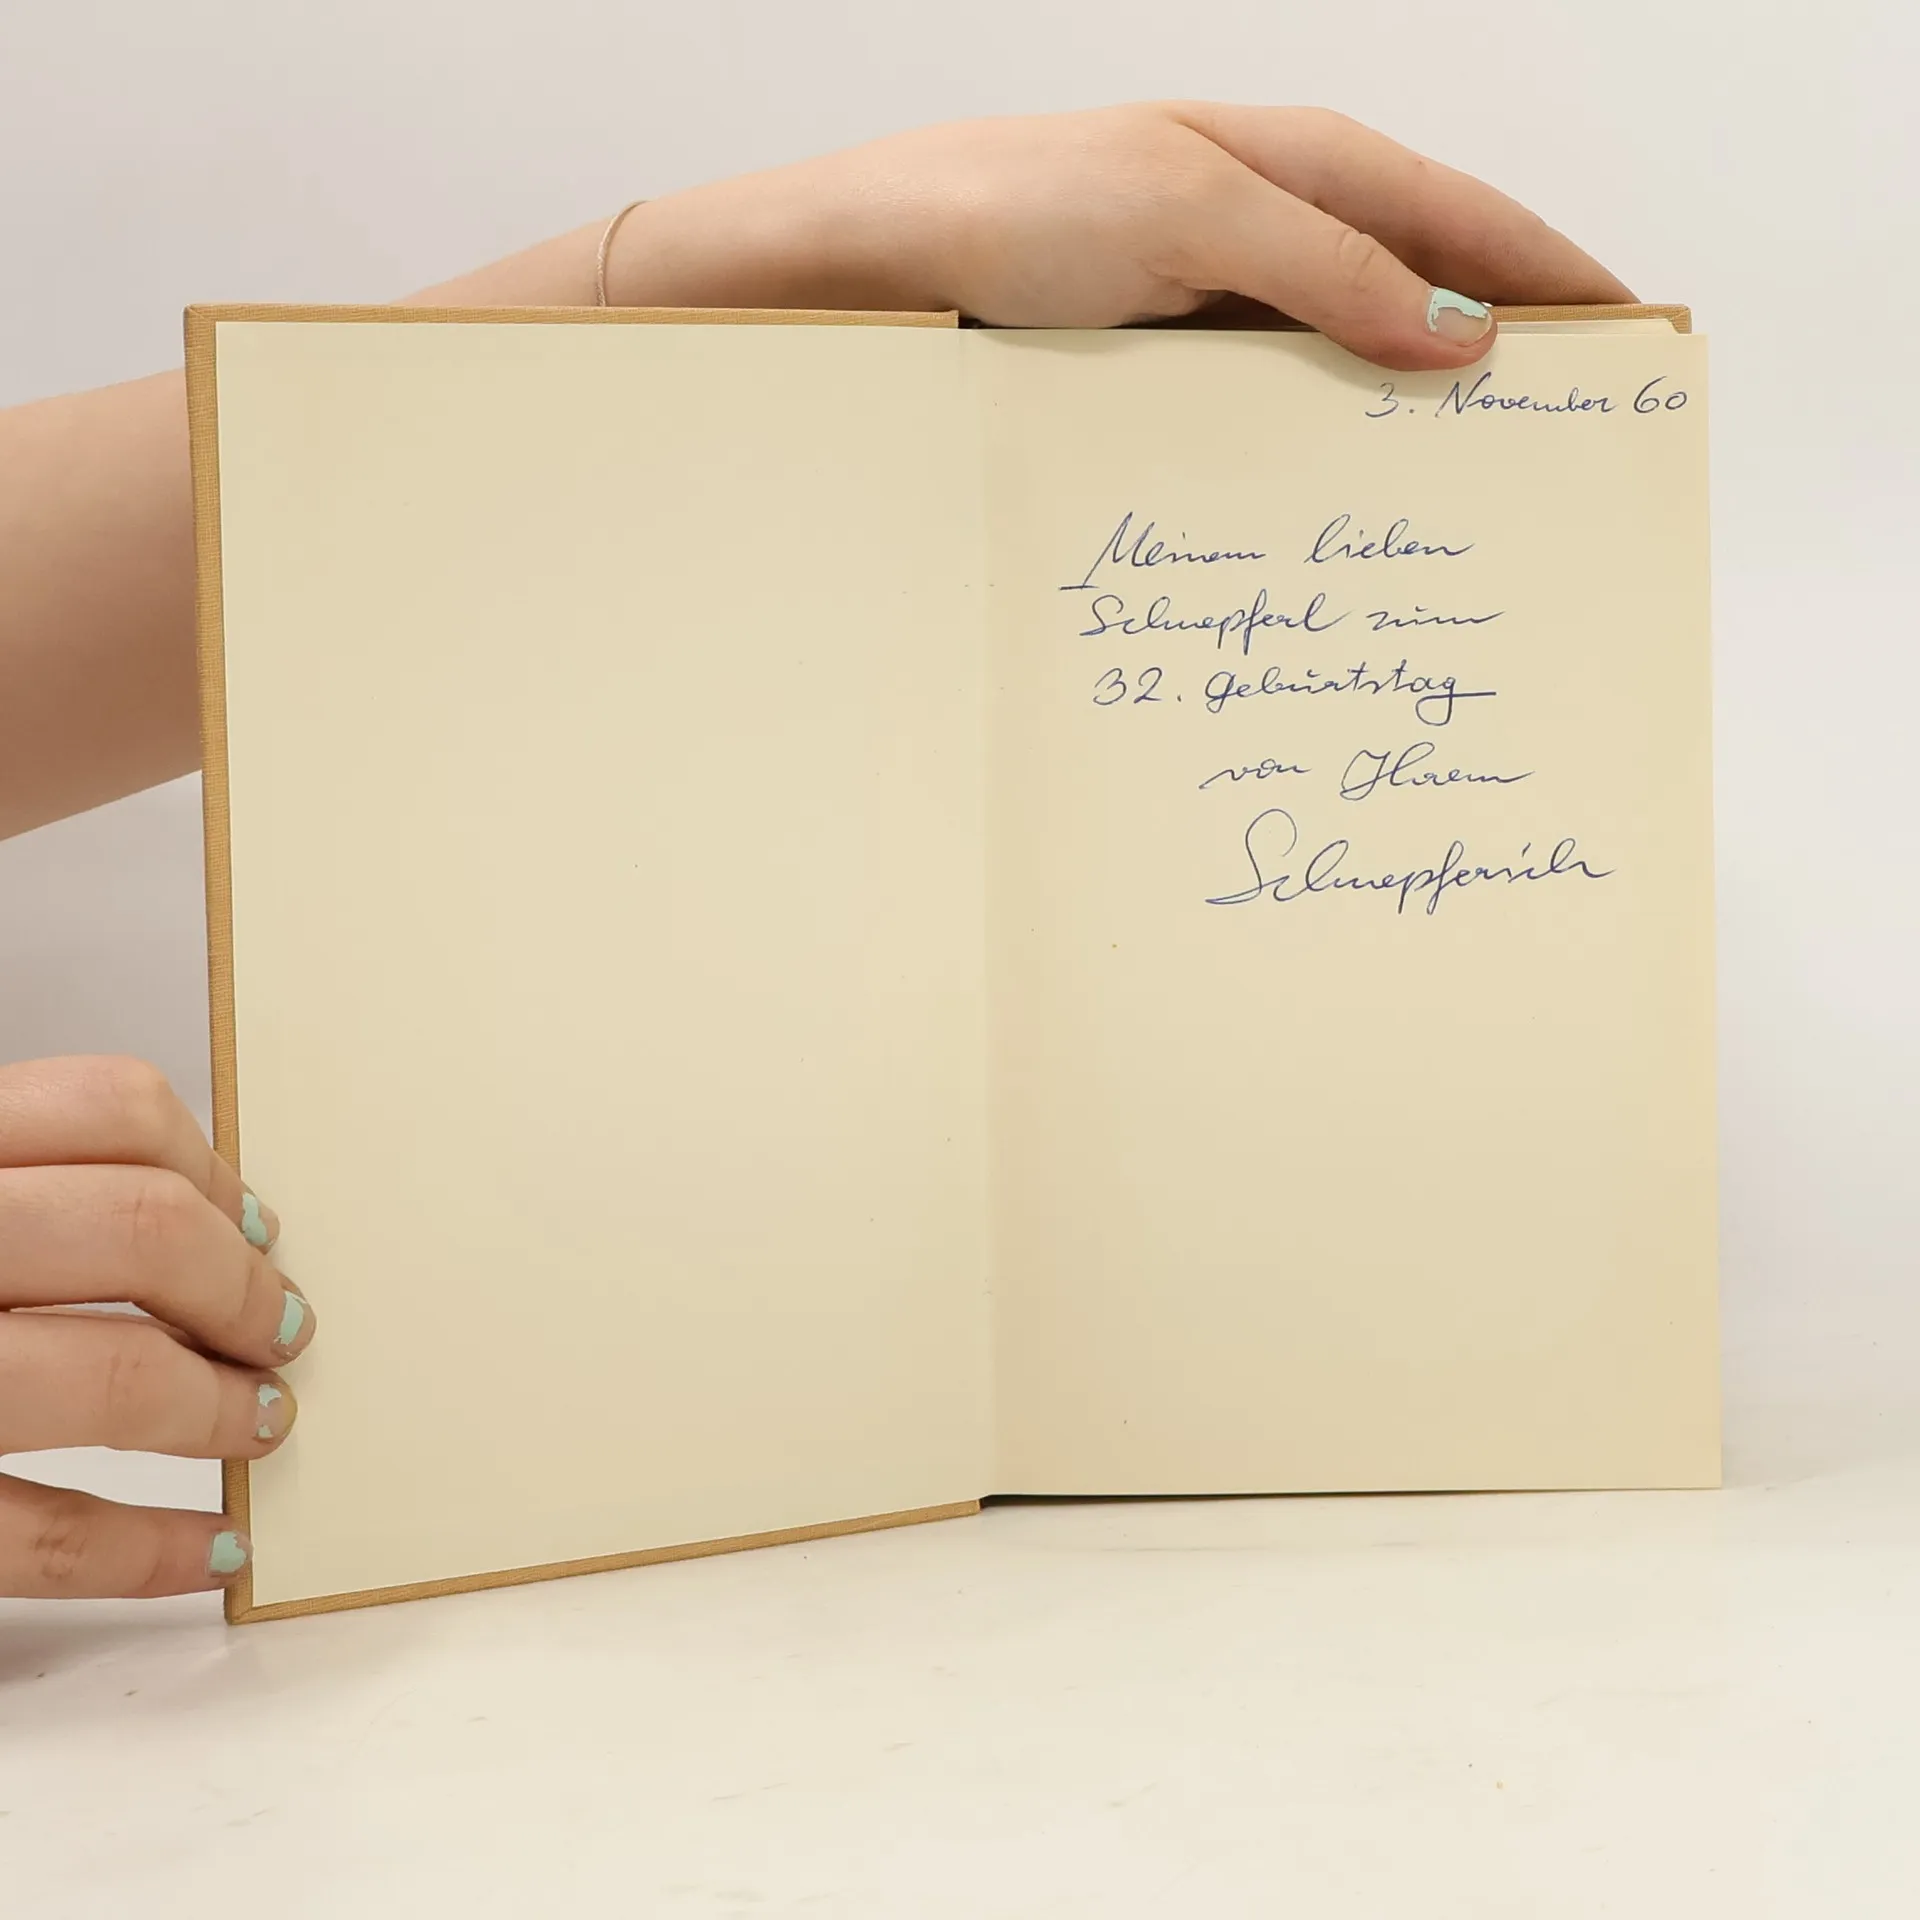 3. November 60
Meinem lieben
Schnepferl zum
32. Geburtstag
von Ihrem
Schnepferich